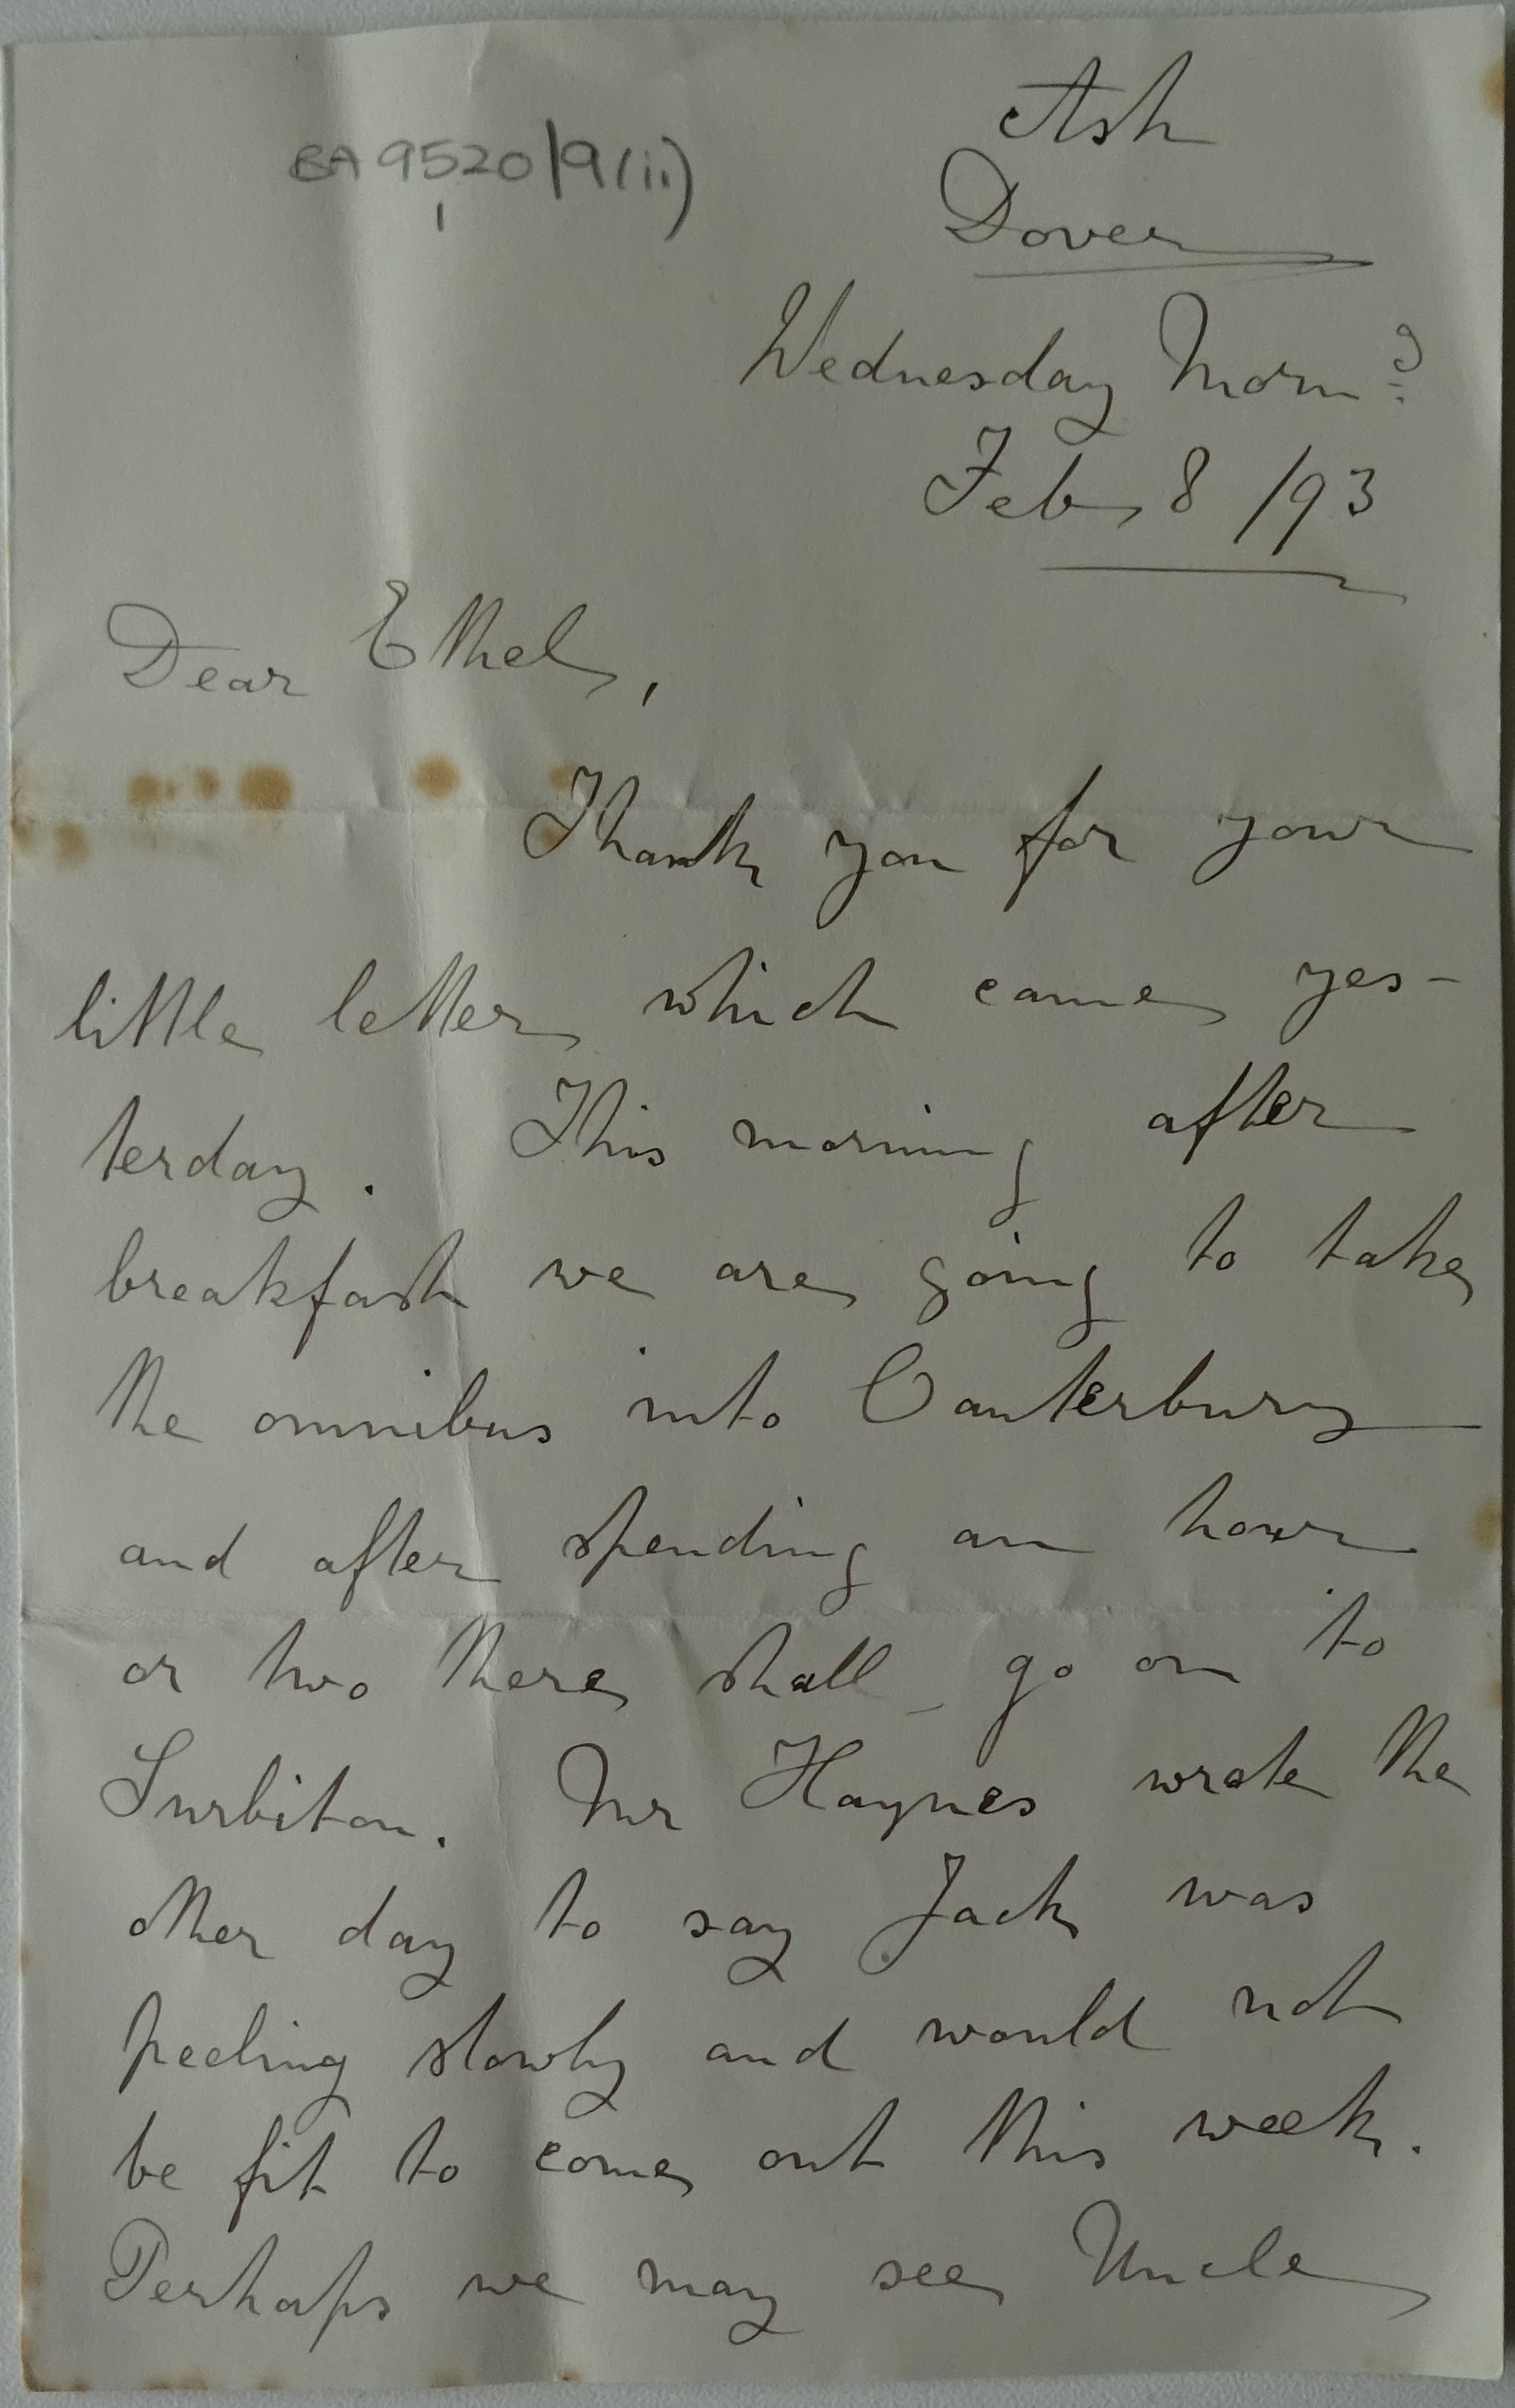 BA 9520/9(ii)
1
Ash
Dover
Wednesday Morng
Feb 8 /93
Dear Ethel,
Thank you for your
little letter which came yes-
terday. This morning after
breakfast we are going to take
the omnibus into Canterbury
and after spending an hour
or two there shall go on to
Surbiton. Mr Haynes wrote the
other day to say Jack was
peeling slowly and would not
be fit to come out this week.
Perhaps we may see Uncle